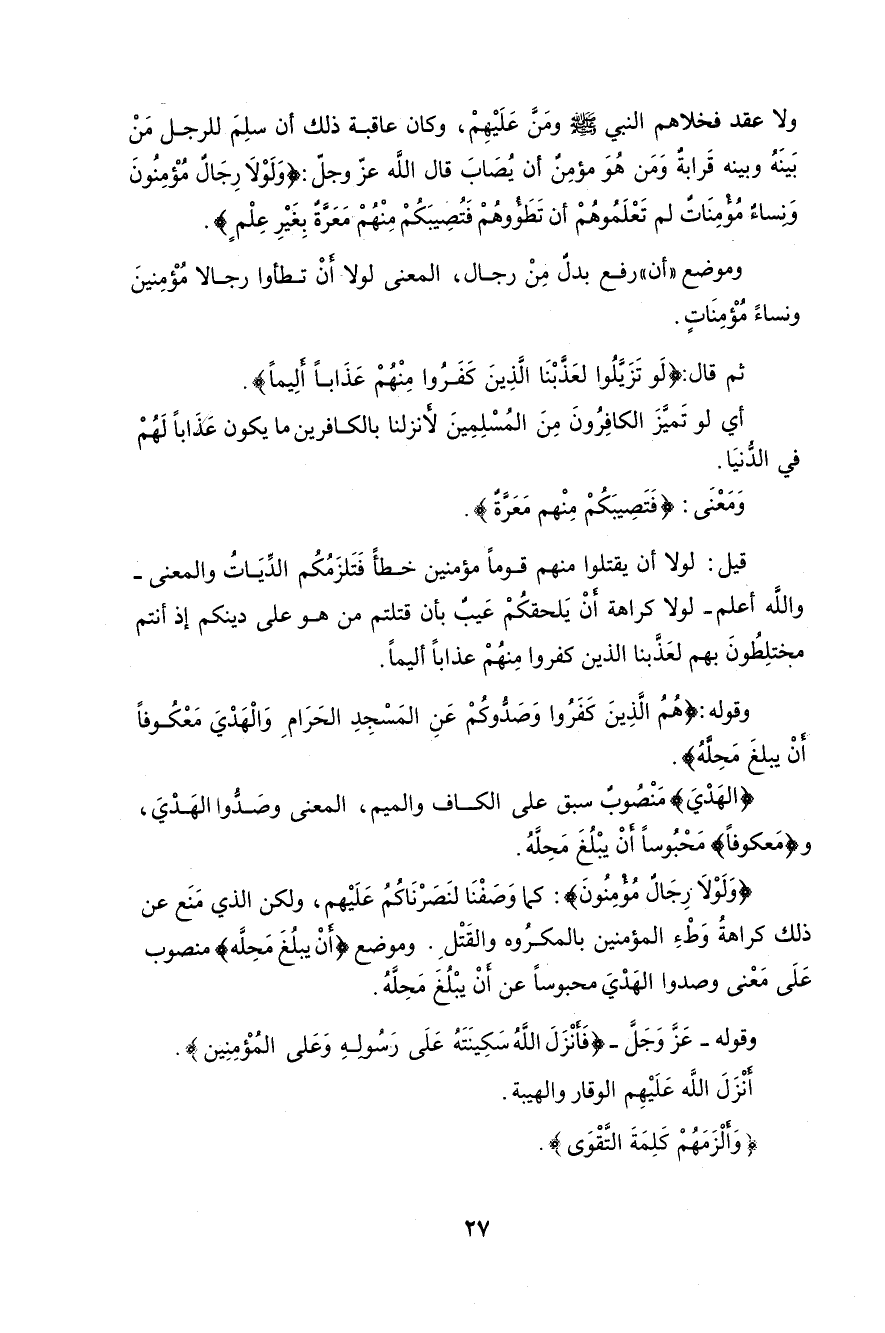 ولا عقد فخلاهم النبي ﷺ ومَنَّ عَلَيْهِمْ، وكان عاقبة ذلك أن سلِمَ للرجل مَنْ
بَينَهُ وبينه قَرابةٌ وَمَن هُوَ مؤمِنٌ أن يُصَابَ قال اللَّه عزّ وجلّ: ﴿وَلَوْلَا رِجَالٌ مُؤْمِنُونَ
وَنِساءٌ مُؤْمِنَاتٌ لم تَعْلَمُوهُمْ أن تَطَؤُوهُمْ فَتُصِيبَكُمْ مِنْهُمْ مَعَرَّةٌ بِغَيْرِ عِلْمٍ﴾.
وموضع «أن» رفع بدلٌ مِنْ رجال، المعنى لولا أَنْ تطأوا رجالا مُؤْمِنينَ
ونساءً مُؤْمِنَاتٍ.
ثم قال: ﴿لَو تَزَيَّلُوا لعَذَّبْنَا الَّذِينَ كَفَرُوا مِنْهُمْ عَذَاباً أَلِيماً﴾.
أي لو تَميَّزَ الكافِرُونَ مِنَ المُسْلِمِينَ لأَنزلنا بالكافرين ما يكون عَذَاباً لَهُمْ
في الدُّنيَا.
وَمَعْنَى: ﴿فَتَصِيبَكُمْ مِنْهم مَعَرَّةٌ﴾.
قيل: لولا أن يقتلوا منهم قوماً مؤمنين خطأً فَتَلزَمُكُم الدِّيَاتُ والمعنى -
واللَّه أعلم - لولا كراهة أَنْ يَلحقكُمْ عَيبٌ بأن قتلتم من هو على دينكم إذ أنتم
مختلِطُونَ بهم لعَذَّبنا الذين كفروا مِنهُمْ عذاباً أليماً.
وقوله: ﴿هُمُ الَّذِينَ كَفَرُوا وَصَدُّوكُمْ عَنِ المَسْجِدِ الحَرَامِ وَالْهَدْيَ مَعْكُوفاً
أَنْ يبلغَ مَحِلَّهُ﴾.
﴿الهَدْيَ﴾ مَنْصُوبٌ سبق على الكاف والميم، المعنى وصَدُّوا الهَدْيَ،
و﴿مَعكوفاً﴾ مَحْبُوساً أَنْ يبْلُغَ مَحِلَّهُ.
﴿وَلَوْلَا رِجَالٌ مُؤْمِنُونَ﴾: كما وَصَفْنَا لنَصَرْنَاكُمُ عَلَيهم، ولكن الذي مَنَع عن
ذلك كراهةُ وَطْءِ المؤمنين بالمكرُوه والقَتْلِ. وموضع ﴿أَنْ يبلُغَ مَحِله﴾ منصوب
عَلَى مَعْنى وصدوا الهَدْيَ محبوساً عن أَنْ يبْلُغَ مَحِلَّهُ.
وقوله - عَزَّ وَجَلَّ - ﴿فَأَنْزَلَ اللَّهُ سَكِينَتَهُ عَلَى رَسُولِهِ وَعَلى المُؤْمِنِين﴾.
أَنْزَلَ اللَّه عَلَيْهِم الوقار والهيبة.
﴿وَأَلْزَمَهُمْ كَلِمَةَ التَّقْوَى﴾.
٢٧